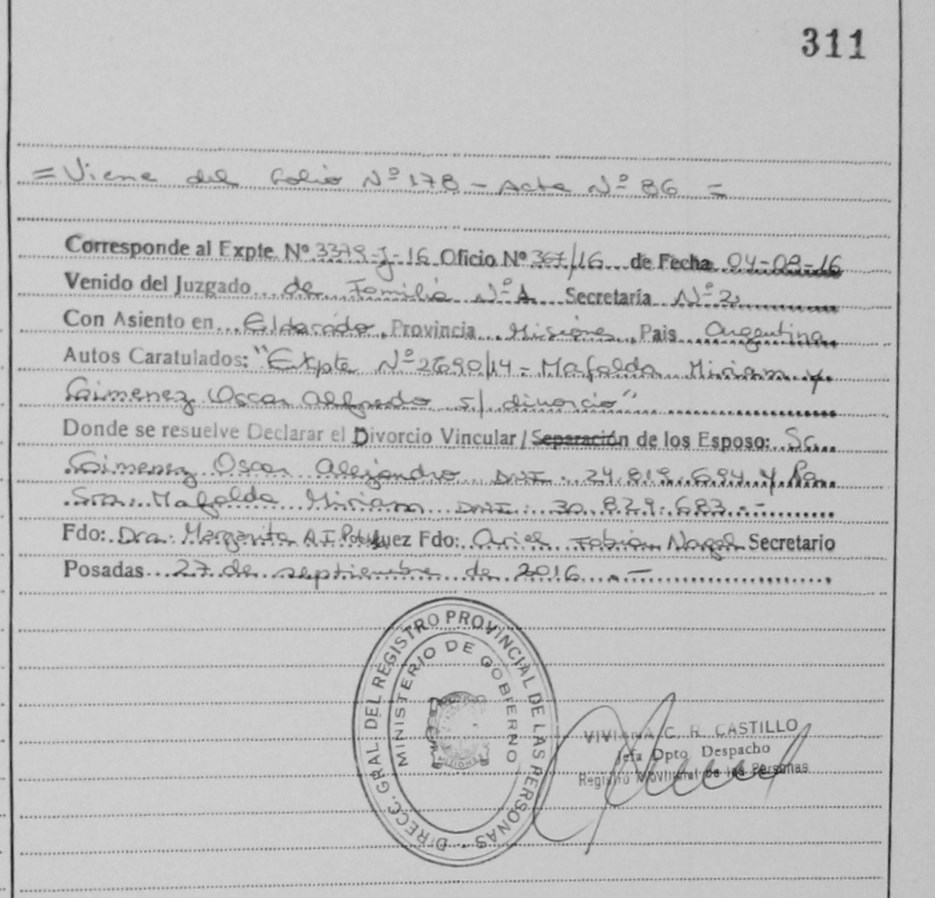 311
= Viene del folio Nº 178 - Acta Nº 86 =
Corresponde al Expte. Nº 3379-J-16 Oficio Nº 367/16 de Fecha 04-08-16
Venido del Juzgado de Familia Nº 1 Secretaría Nº 2
Con Asiento en Eldorado Provincia Misiones País Argentina
Autos Caratulados: "Expte Nº 2690/14 - Mafalda Miriam y
Gimenez Oscar Alfredo s/ divorcio"
Donde se resuelve Declarar el Divorcio Vincular / Separación de los Esposo: Sr.
Gimenez Oscar Alejandro DNI: 24.819.694 y la
Sra. Mafalda Miriam DNI: 30.829.683.-
Fdo: Dra. Margarita A.I. Fdo: Ariel Fabian Nagel Secretario
Posadas 27 de septiembre de 2016.-
DIRECC. GRAL. DEL REGISTRO PROVINCIAL DE LAS PERSONAS
MINISTERIO DE GOBIERNO
VIVIANA C. R. CASTILLO
Jefa Dpto Despacho
Registro Provincial de las Personas